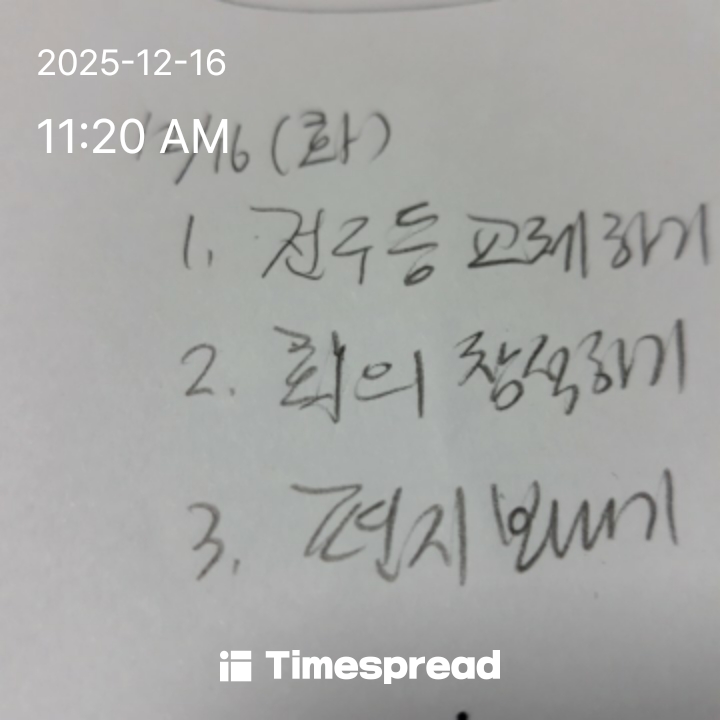 2025-12-16
11:20 AM
12/16 (화)
1. 전구등 교체하기
2. 회의 참석하기
3. 편지 보내기
Timespread